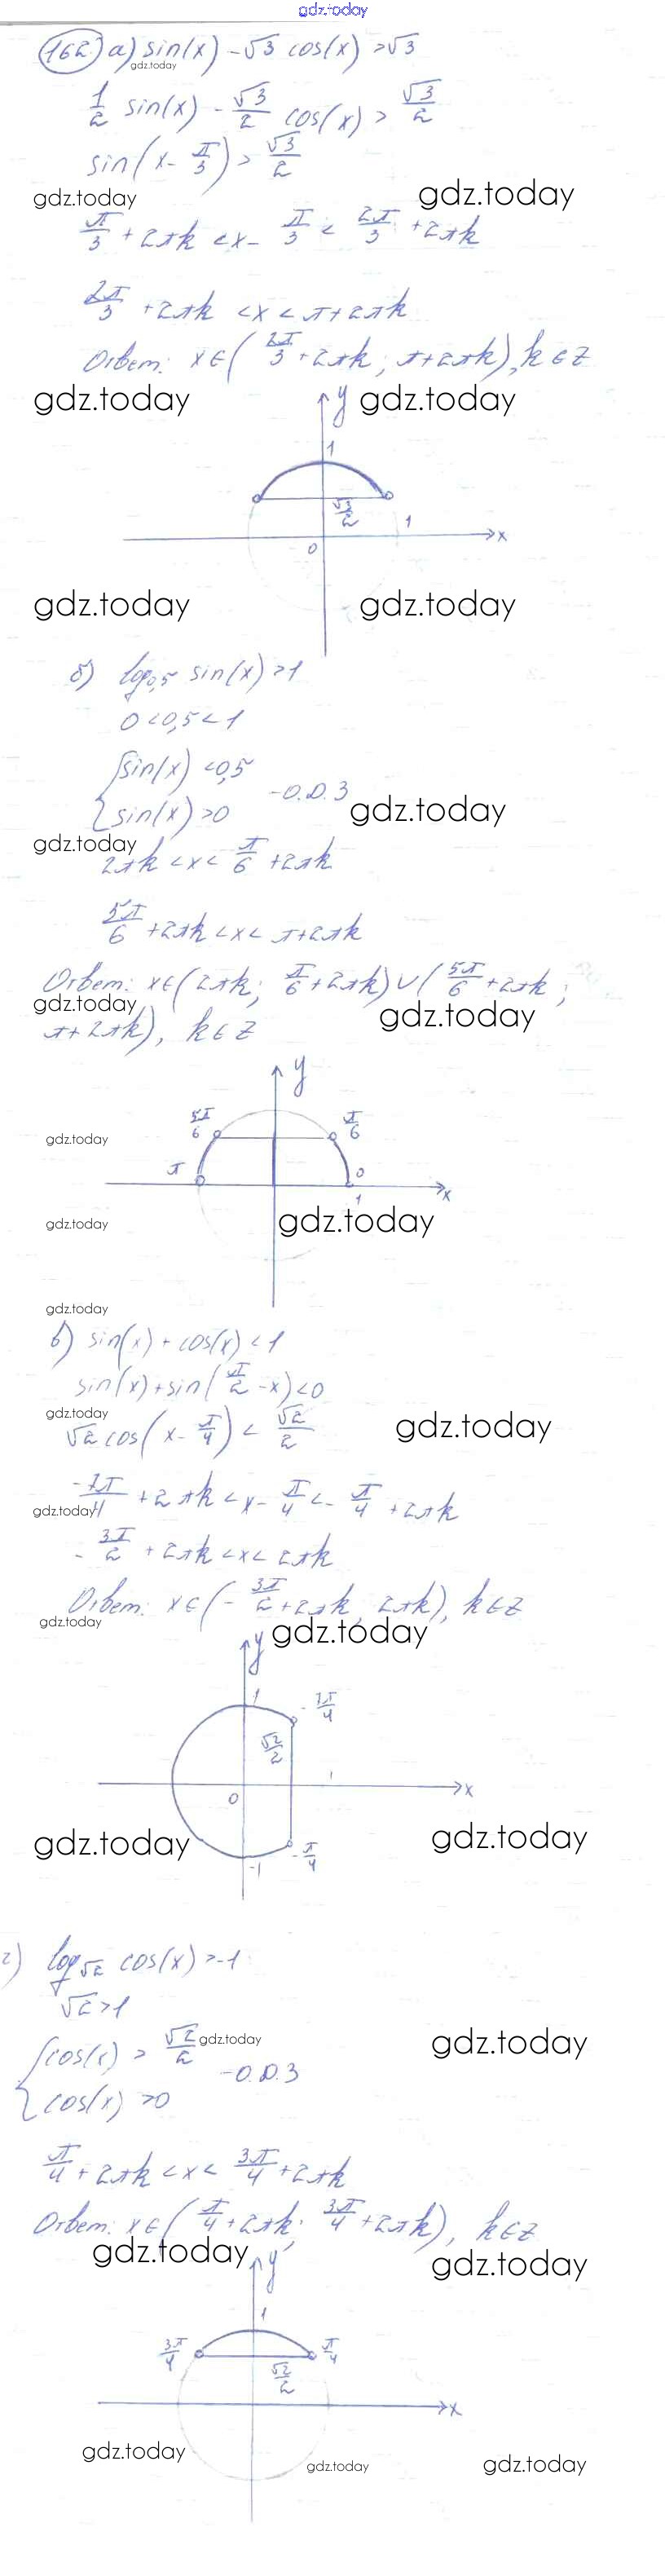 gdz.today
162 а) sin(x) - √3 cos(x) > √3
gdz.today
1/2 sin(x) - √3/2 cos(x) > √3/2
sin(x - π/3) > √3/2
gdz.today gdz.today
π/3 + 2πk < x - π/3 < 2π/3 + 2πk
2π/3 + 2πk < x < π + 2πk
Ответ: x ∈ (2π/3 + 2πk; π + 2πk), k ∈ Z
gdz.today y gdz.today
1
√3/2 1
0 x
gdz.today gdz.today
б) log0,5 sin(x) > 1
0 < 0,5 < 1
{ sin(x) < 0,5
{ sin(x) > 0 - О.D.З
gdz.today
gdz.today
2πk < x < π/6 + 2πk
5π/6 + 2πk < x < π + 2πk
Ответ: x ∈ (2πk; π/6 + 2πk) ∪ (5π/6 + 2πk;
gdz.today gdz.today
π + 2πk), k ∈ Z
y
5π/6 π/6
gdz.today
π 0
1 x
gdz.today gdz.today
gdz.today
в) sin(x) + cos(x) < 1
sin(x) + sin(π/2 - x) < 0
gdz.today gdz.today
√2 cos(x - π/4) < √2/2
-7π/4 + 2πk < x - π/4 < - π/4 + 2πk
gdz.today
- 3π/2 + 2πk < x < 2πk
Ответ: x ∈ (- 3π/2 + 2πk; 2πk), k ∈ Z
gdz.today gdz.today
y
1 - 7π/4
√2/2
1
0 x
gdz.today - π/4 gdz.today
-1
г) log√2 cos(x) > -1
√2 > 1
{ cos(x) > √2/2 gdz.today
{ cos(x) > 0 - О.D.З
gdz.today
π/4 + 2πk < x < 3π/4 + 2πk
Ответ: x ∈ (π/4 + 2πk; 3π/4 + 2πk), k ∈ Z
gdz.today y gdz.today
1
3π/4 π/4
√2/2
x
gdz.today gdz.today gdz.today